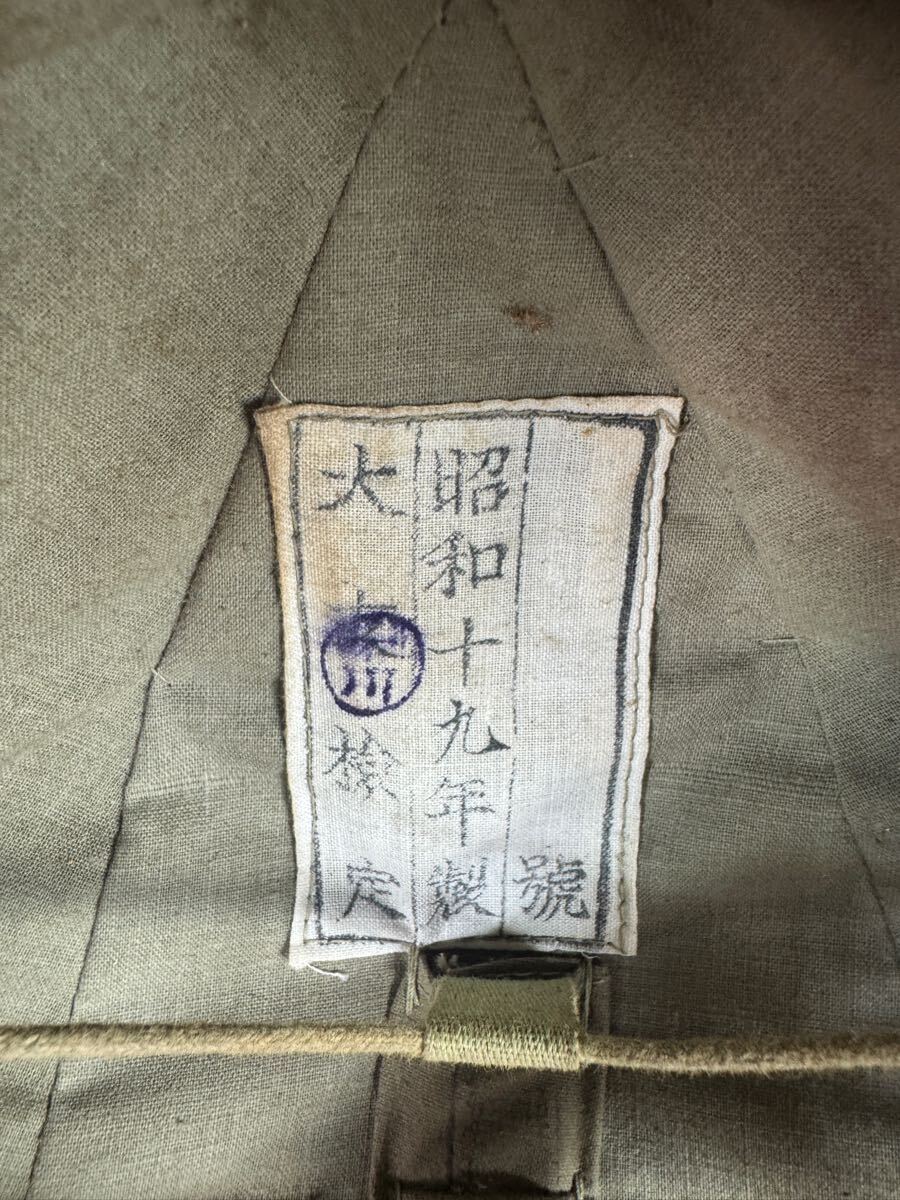 號
昭和十九年製
大支検定
川